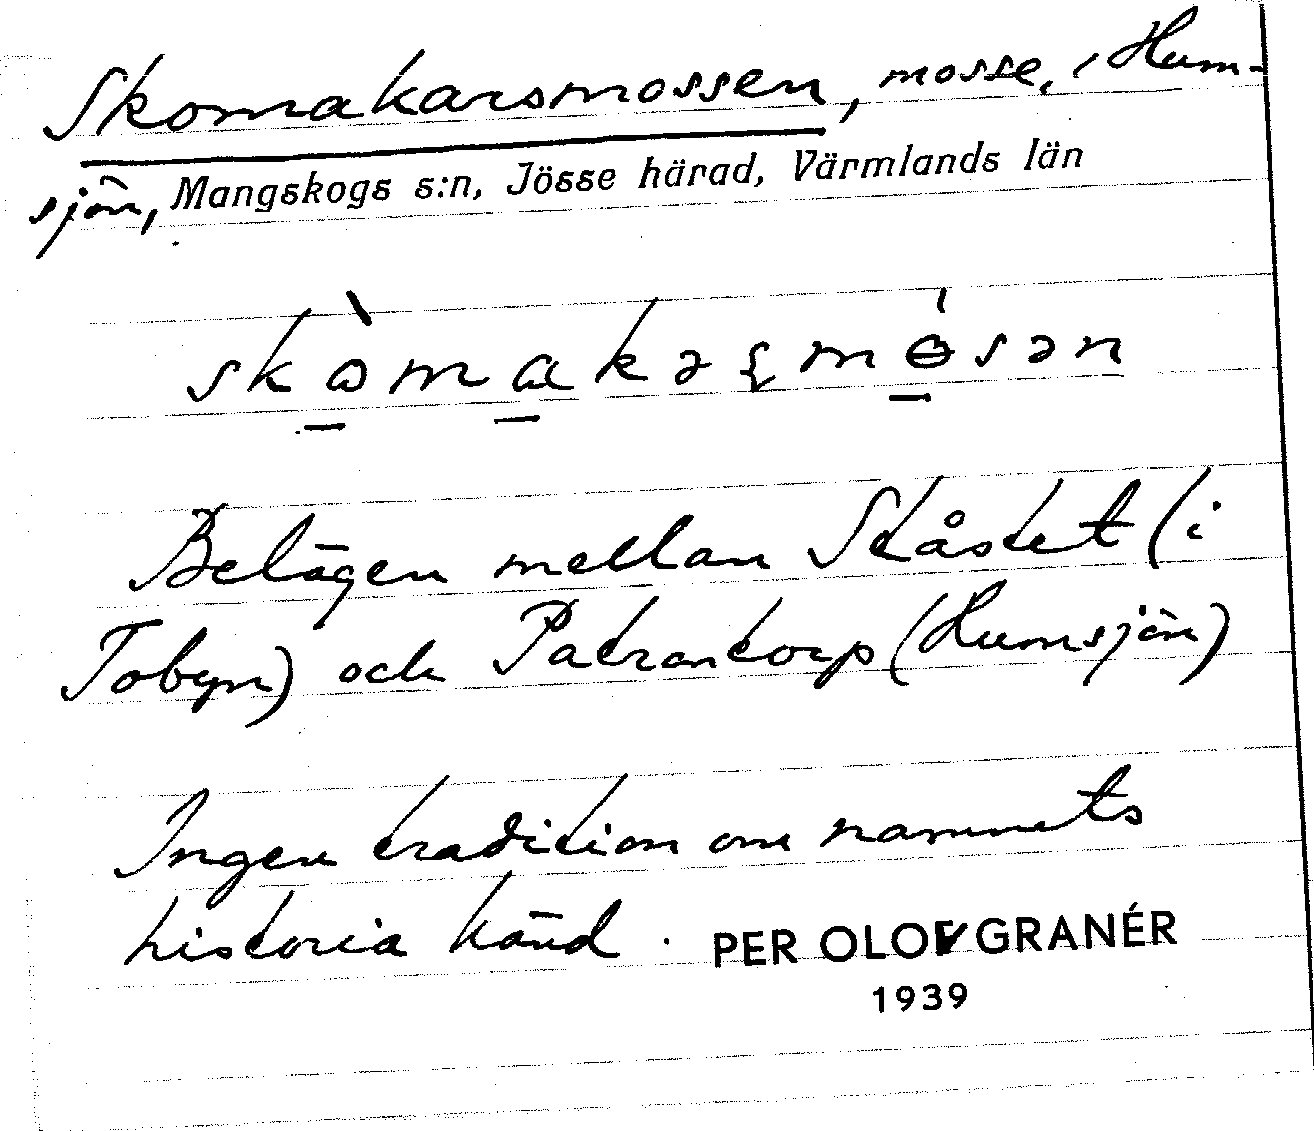 Skomakarsmossen, mosse, i Hum-
sjön, Mangskogs s:n, Jösse härad, Värmlands län
Belägen mellan Ståstet (i
Tobyn) och Patrontorp (Humsjön)
Ingen tradition om namnets
historia känd.
PER OLOV GRANÉR
1939